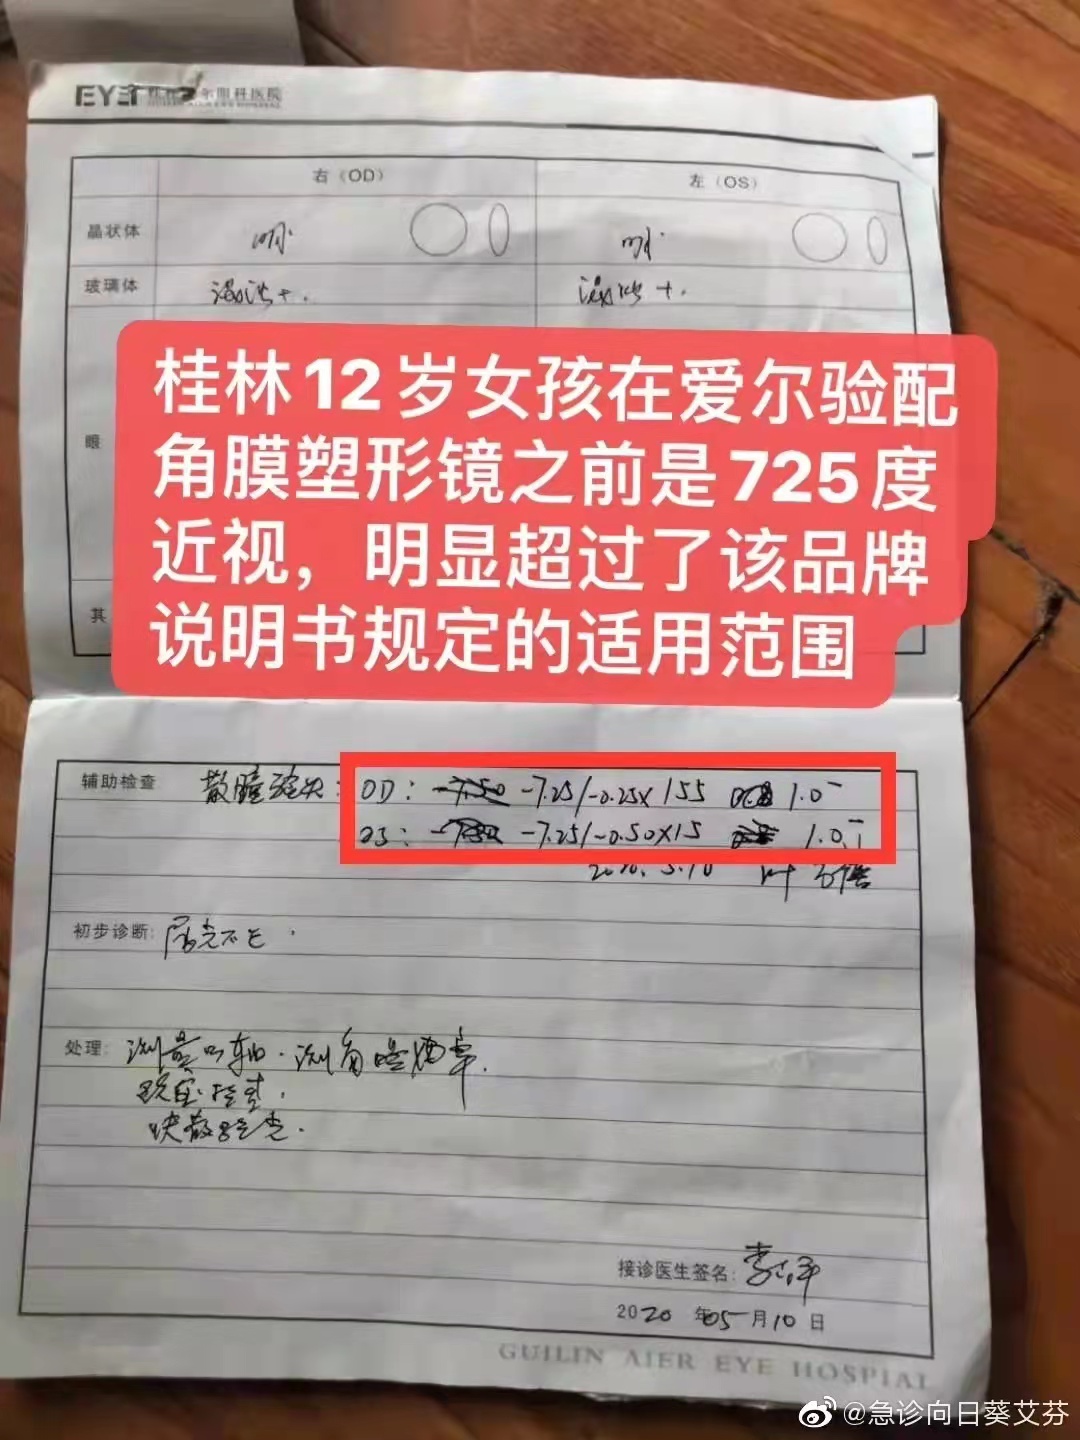 EYE
尔眼科医院
右（OD）
左（OS）
晶状体
明
明
玻璃体
混浊+.
混浊+.
桂林12岁女孩在爱尔验配
角膜塑形镜之前是725度
近视，明显超过了该品牌
说明书规定的适用范围
眼
其
辅助检查
散瞳验光: OD: -7.50 -7.25/-0.25×155 1.0⁻
OS: -7.50 -7.25/-0.50×15 1.0⁻
2020.5.10
初步诊断: 屈光不正.
处理: 测量眼轴.测角膜曲率.
快散验光.
接诊医生签名:
2020 年05月10日
GUILIN AIER EYE HOSPIAL
@急诊向日葵艾芬